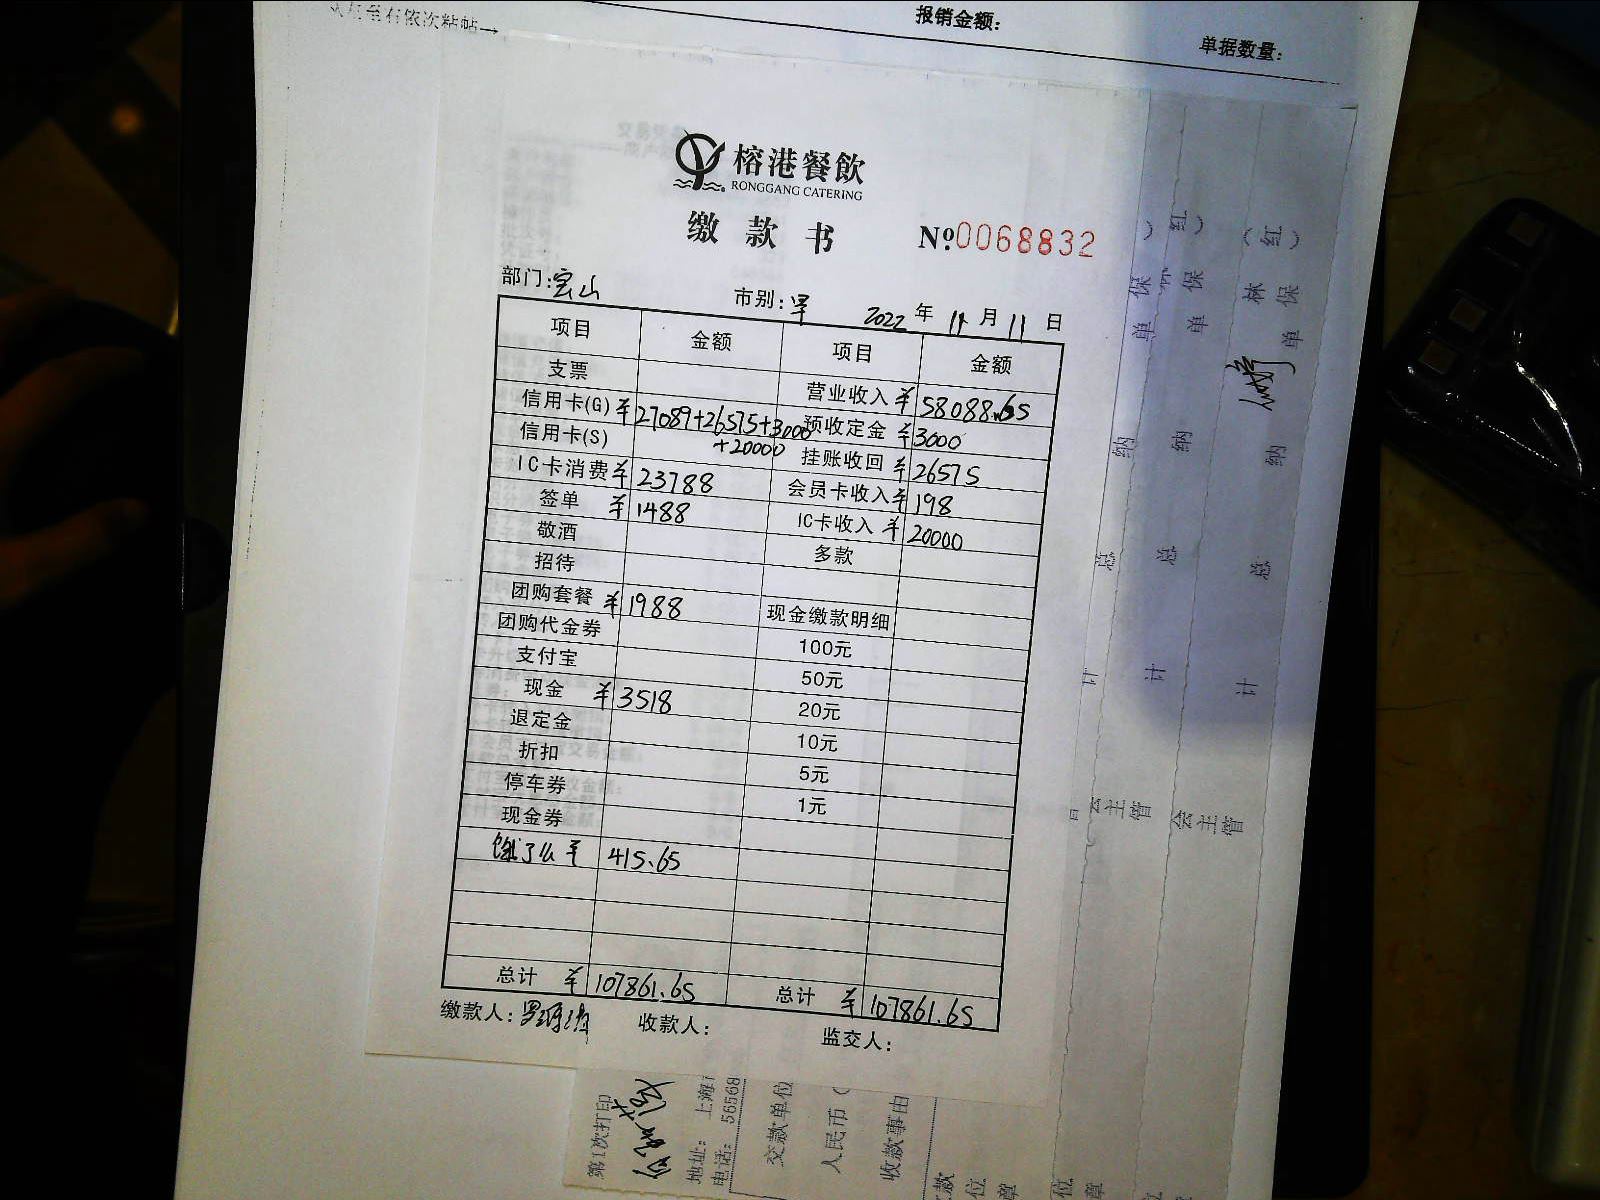 报销金额：
单据数量：
榕港餐飲
RONGGANG CATERING
缴款书 №0068832
部门：宝山 市别：早 2022年11月11日
项目 金额 项目 金额
支票 营业收入 ¥58088.65
信用卡(G) ¥27089+26575+3000 预收定金 ¥3000
信用卡(S) +20000 挂账收回 ¥26575
IC卡消费 ¥23788 会员卡收入 ¥198
签单 ¥1488 IC卡收入 ¥20000
敬酒 多款
招待
团购套餐 ¥1988 现金缴款明细
团购代金券 100元
支付宝 50元
现金 ¥3518 20元
退定金 10元
折扣 5元
停车券 1元
现金券
饿了么 ¥415.65
总计 ¥107861.65 总计 ¥107861.65
缴款人： 收款人： 监交人：
第1次打印
地址：上海
电话：56568
交款单位
人民币（
收款事由